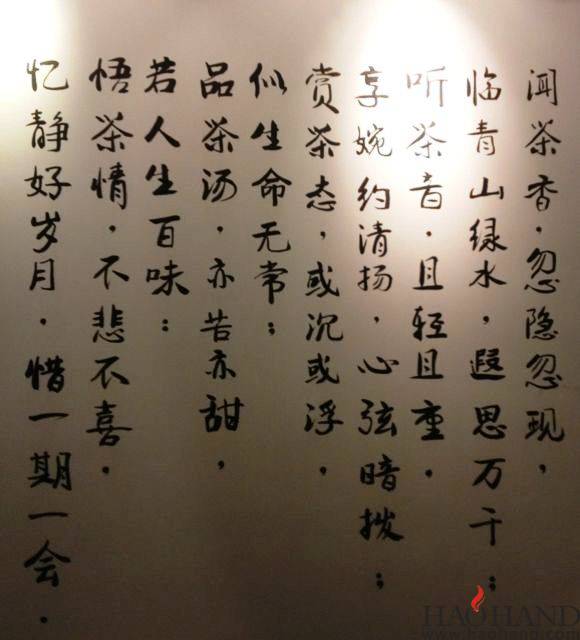 闻茶香，忽隐忽现，
临青山绿水，遐思万千；
听茶音，且轻且重，
享婉约清扬，心弦暗拨；
赏茶态，或沉或浮，
似生命无常；
品茶汤，亦苦亦甜，
若人生百味；
悟茶情，不悲不喜，
忆静好岁月，惜一期一会.
HAOHAND